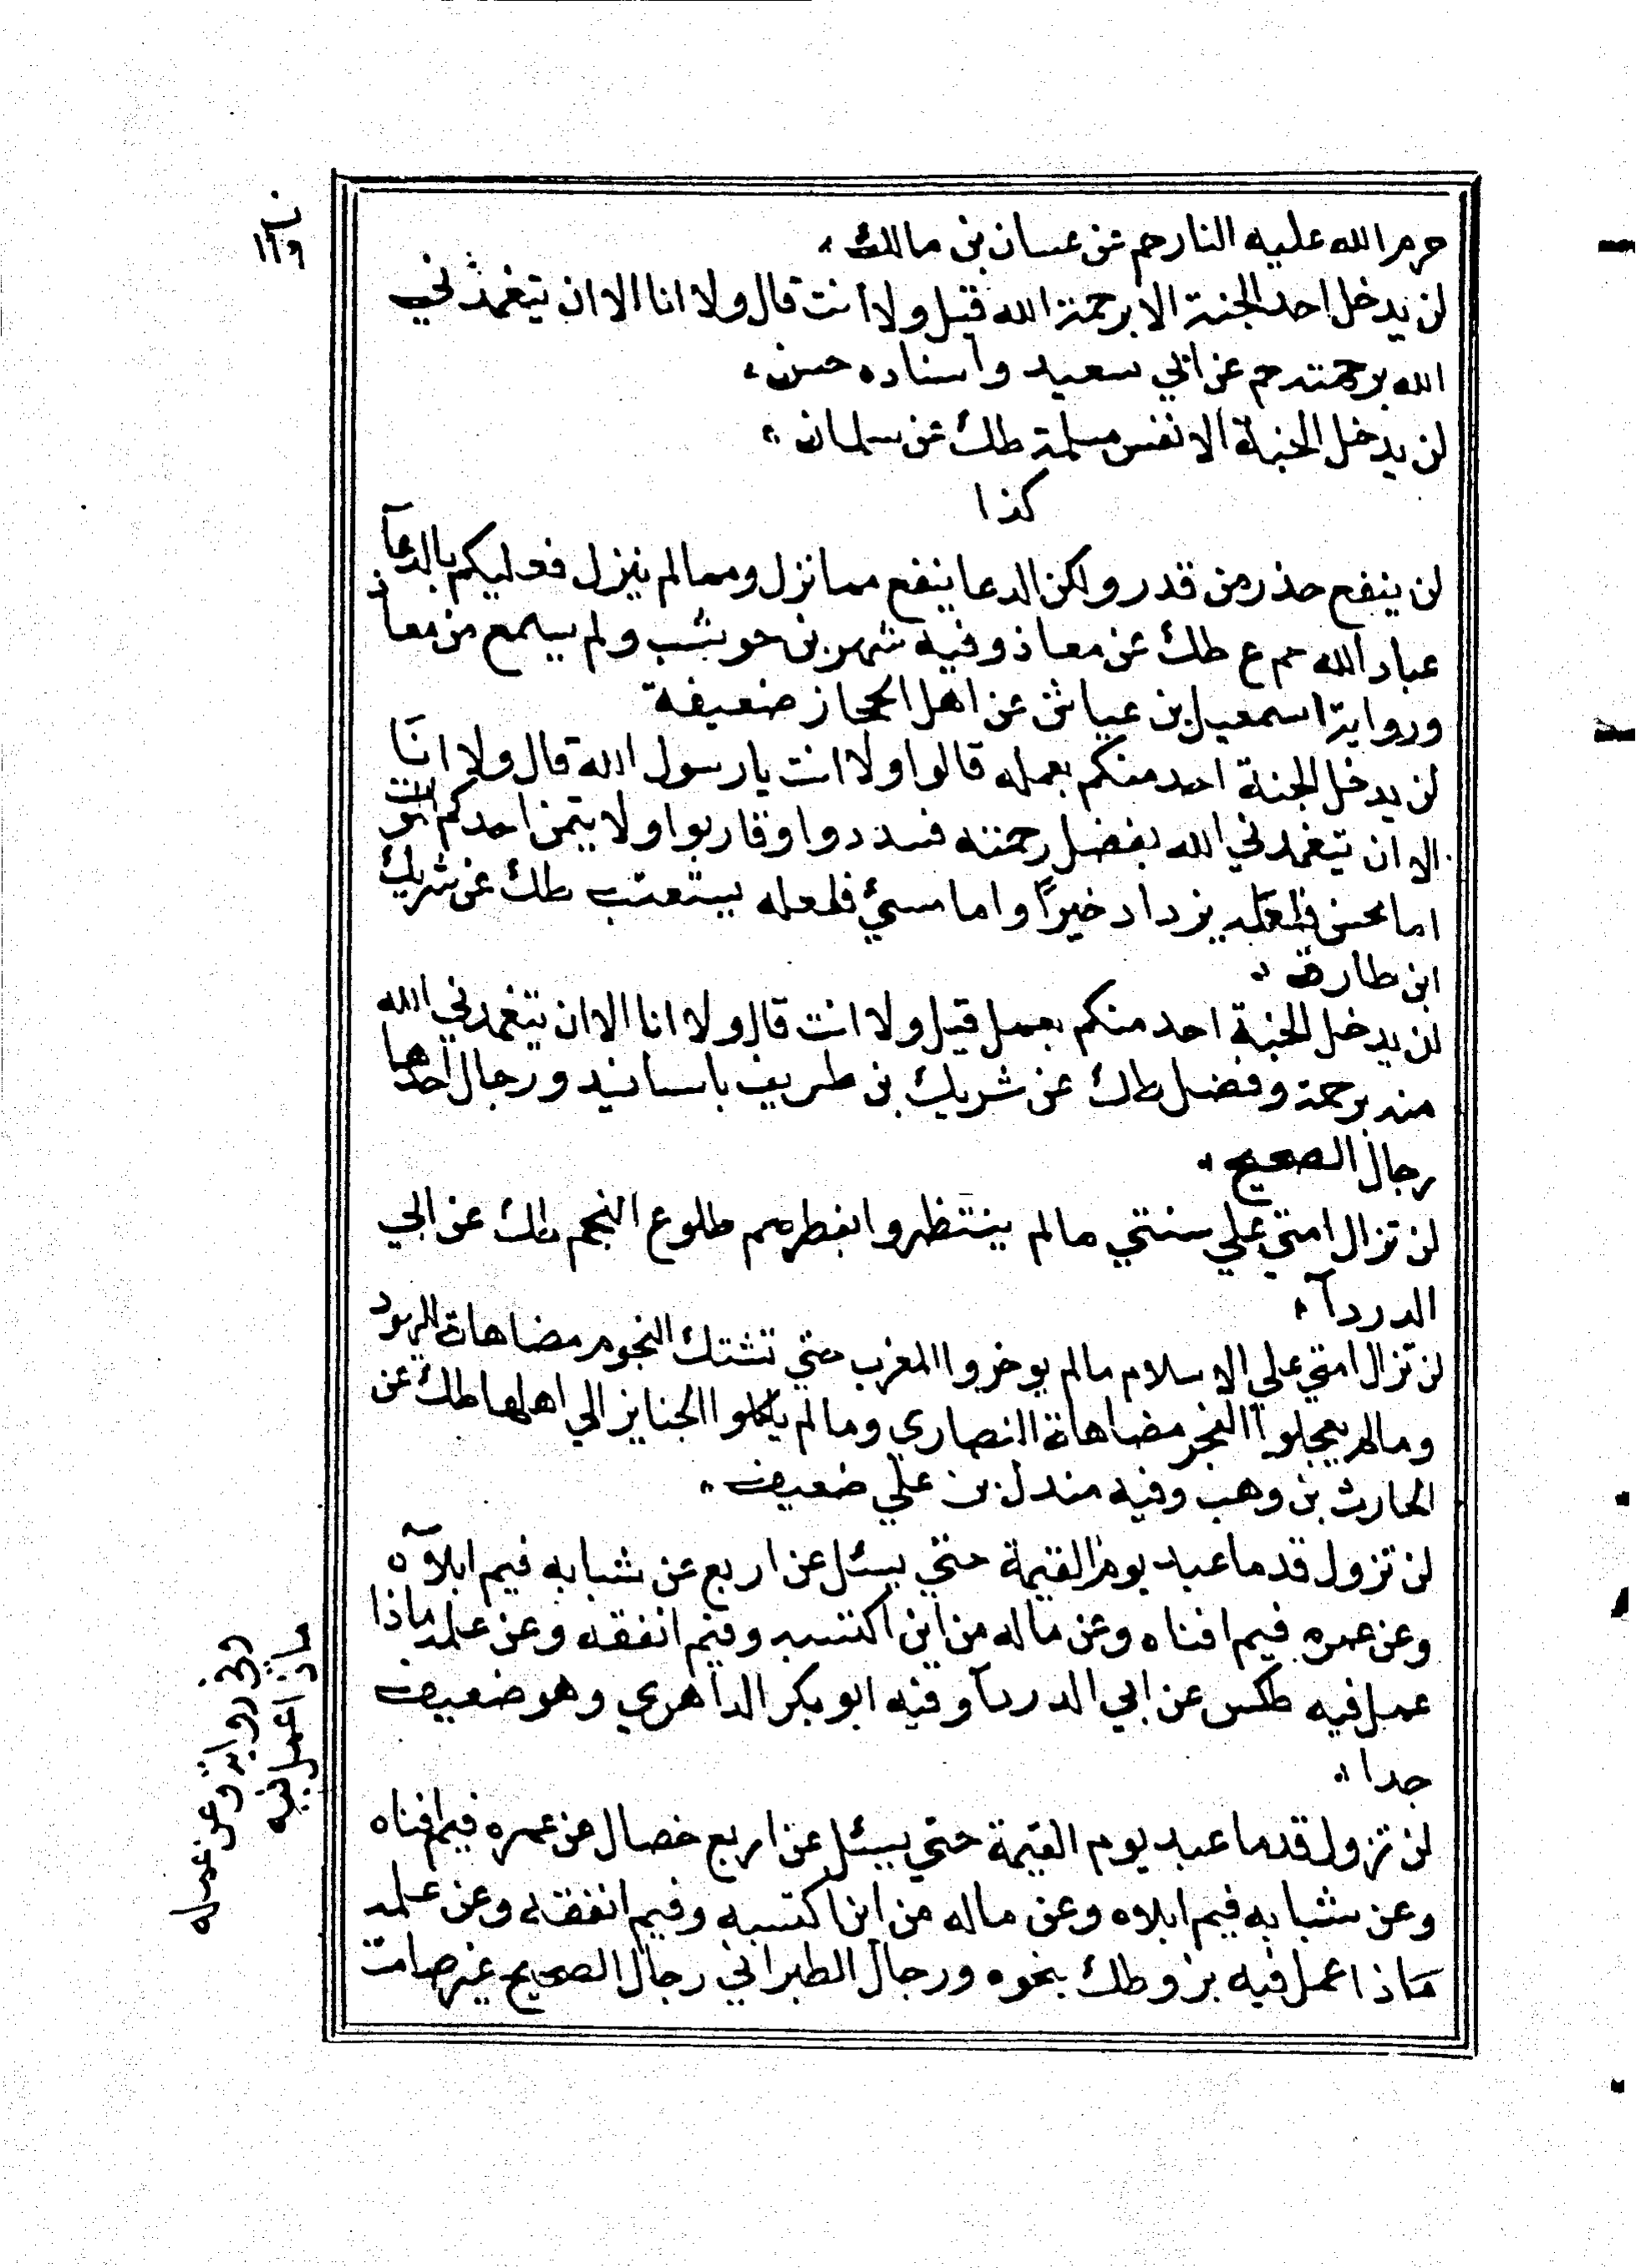 حرم الله عليه النار حم عن عسان بن مالك
لن يدخل احد الجنة الا برحمة الله قيل ولا انت قال ولا انا الا ان يتغمدني
الله برحمته حم عن ابي سعيد واسناده حسن
لن يدخل الجنة الا نفس مسلمة طك عن سلمان
كذا
لن ينفع حذر من قدر ولكن الدعا ينفع مما نزل ومما لم ينزل فعليكم بالدعآ
عباد الله حم ع طك عن معاذ وفيه شهر بن حوشب ولم يسمع من معاذ
ورواية اسمعيل بن عياش عن اهل الحجاز ضعيفة
لن يدخل الجنة احد منكم بعمله قالوا ولا انت يا رسول الله قال ولا انا
الا ان يتغمدني الله بفضل رحمته فسددوا وقاربوا ولا يتمن احدكم الموت
اما محسن فلعله يزداد خيرًا واما مسئ فلعله يستعتب طك عن شريك
ابن طارق
لن يدخل الجنة احد منكم بعمل قيل ولا انت قال ولا انا الا ان يتغمدني الله
منه برحمة وفضل طك عن شريك بن طريف باسانيد ورجال احدها
رجال الصحيح
لن تزال امتي علي سنتي مالم ينتظروا بفطرهم طلوع النجم طك عن ابي
الدردآ
لن تزال امتي علي الاسلام مالم يوخروا المغرب حتي تشتبك النجوم مضاهاة اليهود
ومالم يعجلوا الفجر مضاهاة النصاري ومالم يكلوا الجنايز الي اهلها طك عن
الحارث بن وهب وفيه مندل بن علي ضعيف
لن تزول قدما عبد يوم القيمة حتي يسئل عن اربع عن شبابه فيم ابلاه
وعن عمره فيم افناه وعن ماله من اين اكتسبه وفيم انفقه وعن علمه ماذا
عمل فيه طكس عن ابي الدردآ وفيه ابو بكر الداهري وهو ضعيف
جدا
لن تزول قدما عبد يوم القيمة حتي يسئل عن اربع خصال عن عمره فيم افناه
وعن شبابه فيم ابلاه وعن ماله من اين اكتسبه وفيم انفقه وعن علمه
ماذا عمل فيه بز وطك بنحوه ورجال الطبراني رجال الصحيح غير صامت
وفي رواية وعن عمله
ماذا عمل فيه